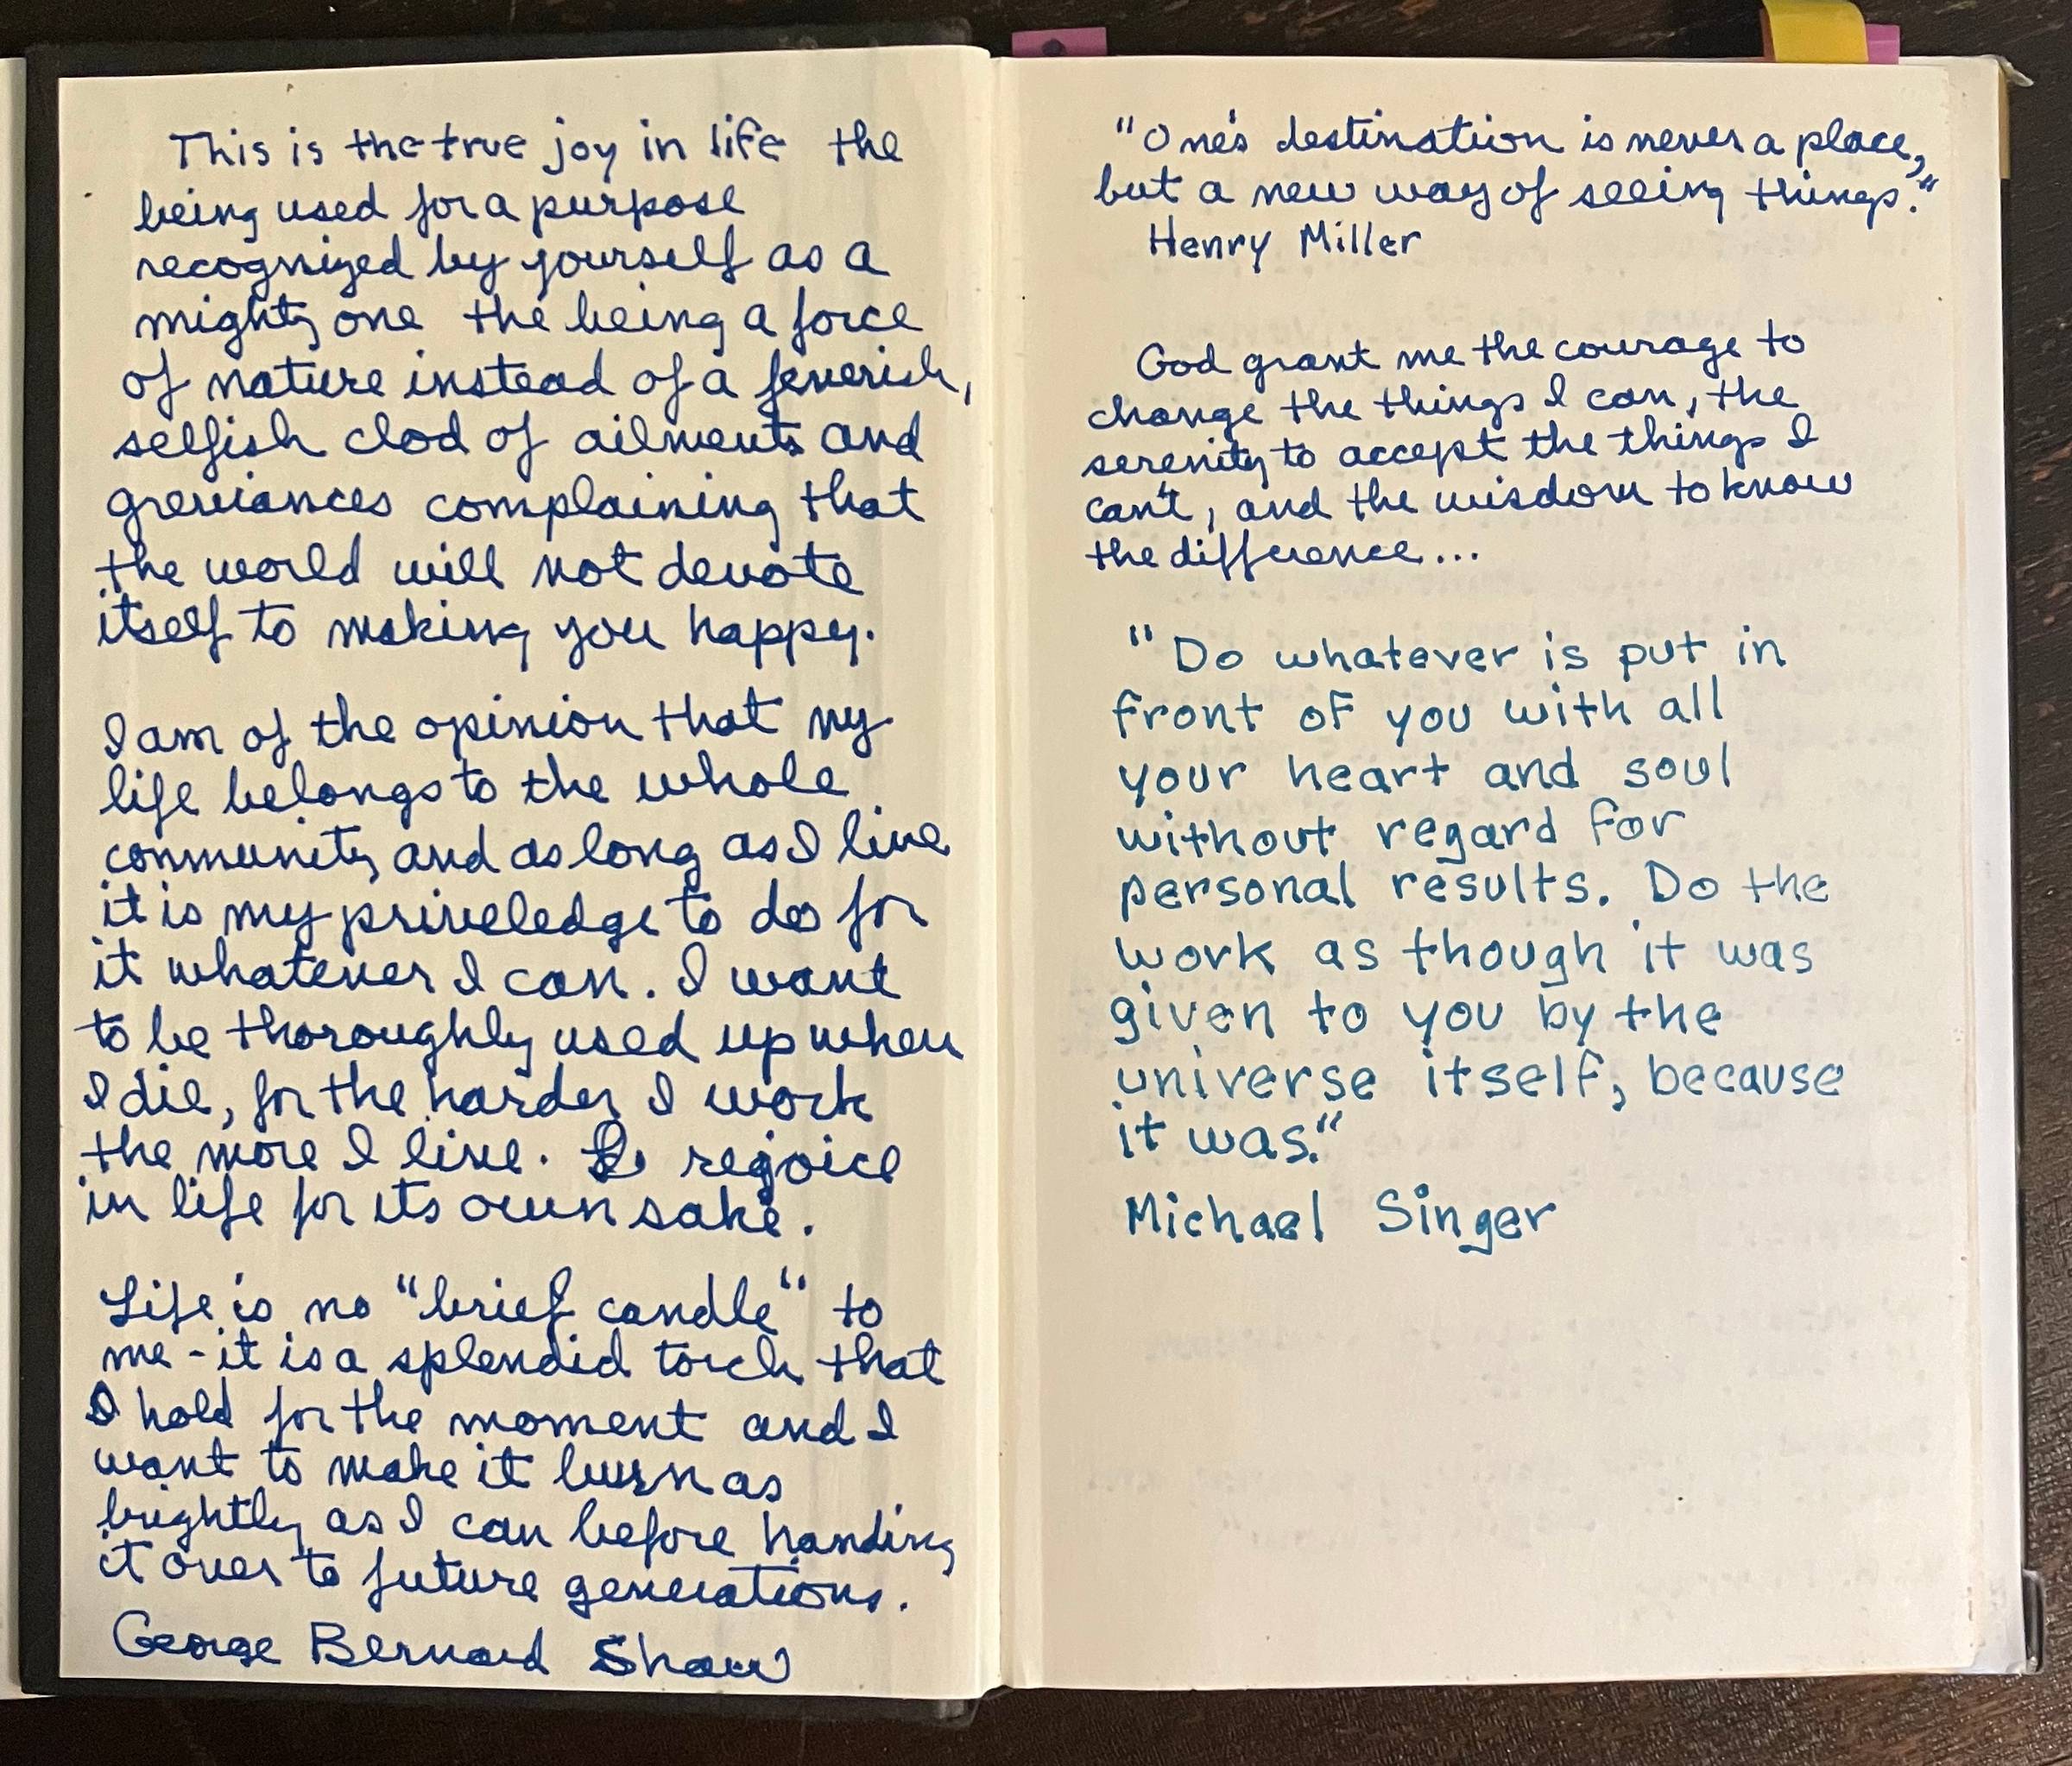 This is the true joy in life the
being used for a purpose
recognized by yourself as a
mighty one the being a force
of nature instead of a feverish,
selfish clod of ailments and
greviances complaining that
the world will not devote
itself to making you happy.
I am of the opinion that my
life belongs to the whole
community and as long as I live
it is my priveledge to do for
it whatever I can. I want
to be thoroughly used up when
I die, for the harder I work
the more I live. I rejoice
in life for its own sake.
Life is no "brief candle" to
me - it is a splendid torch that
I hold for the moment and I
want to make it burn as
brightly as I can before handing
it over to future generations.
George Bernard Shaw
"One's destination is never a place,
but a new way of seeing things."
Henry Miller
God grant me the courage to
change the things I can, the
serenity to accept the things I
can't, and the wisdom to know
the difference...
"Do whatever is put in
front of you with all
your heart and soul
without regard for
personal results. Do the
work as though it was
given to you by the
universe itself, because
it was."
Michael Singer